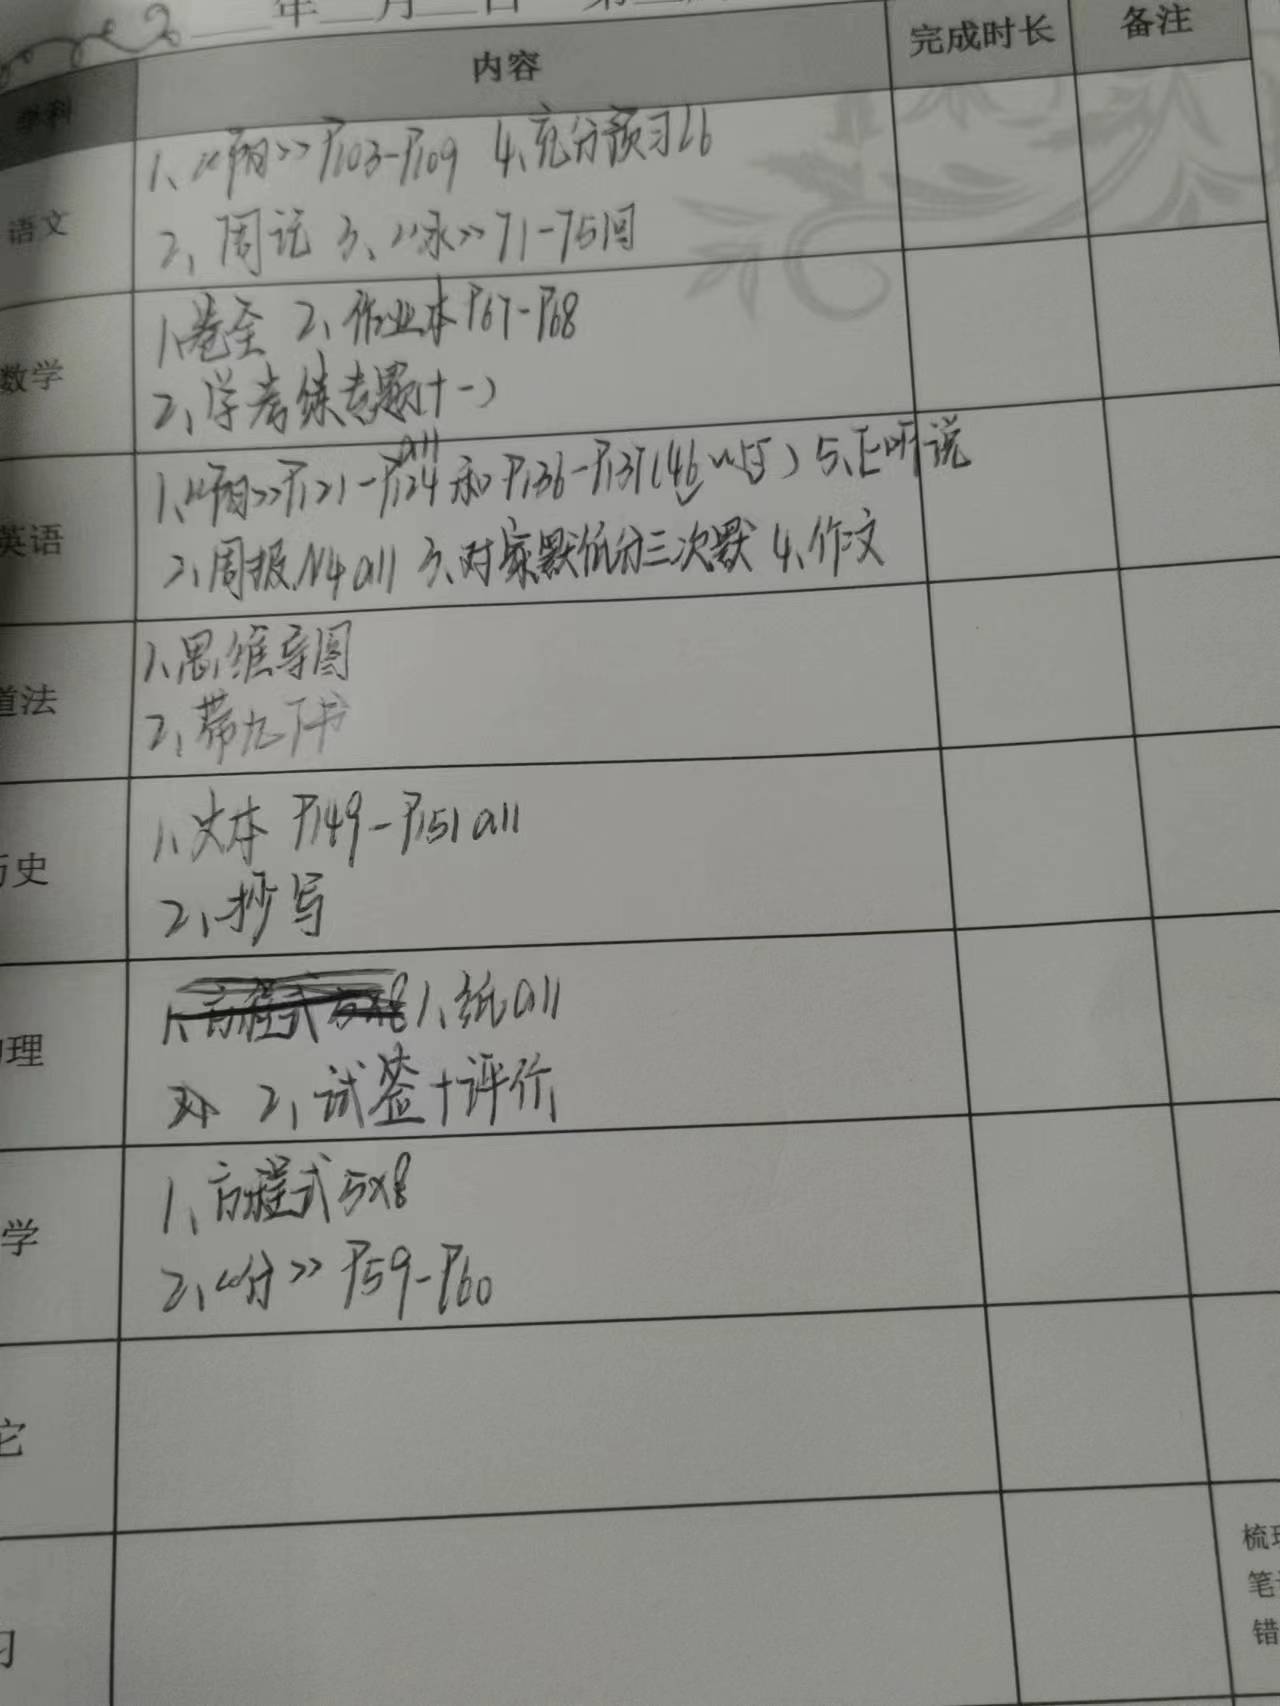 年 月 日 第
学科 内容 完成时长 备注
语文
1、《阳》P103-P109 4、充分预习26
2、周记 3、《水》71-75回
数学
1、卷全 2、作业本P67-P68
2、学考练专题(十一)
英语
all
1、《阳》P121-P124和P136-P137(46 ) 5、E听说
2、周报N4 all 3、对家默低分三次默 4、作文
道法
1、思维导图
2、带九下书
历史
1、史本 P149-P151 all
2、抄写
理
1、纸all
2、试卷+评价
学
1、方程式5×8
2、《分》P59-P60
它
习
梳理
笔
错